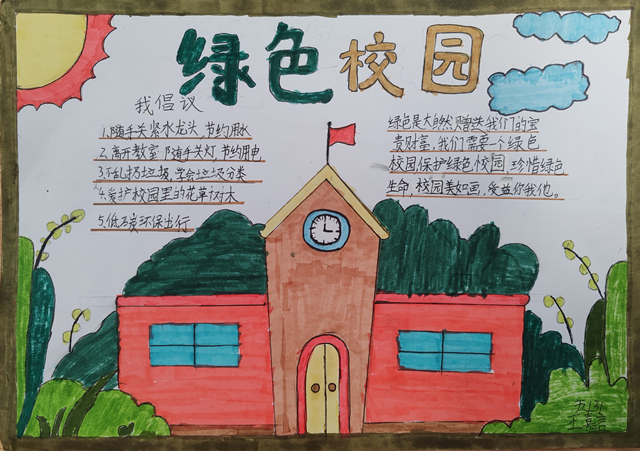 绿色校园
我倡议
1.随手关紧水龙头,节约用水
2.离开教室,随手关灯,节约用电
3.不乱扔垃圾,学会垃圾分类
4.爱护校园里的花草树木
5.低碳环保出行
绿色是大自然赠送我们的宝
贵财富,我们需要一个绿色
校园保护绿色校园,珍惜绿色
生命,校园美如画,受益你我他。